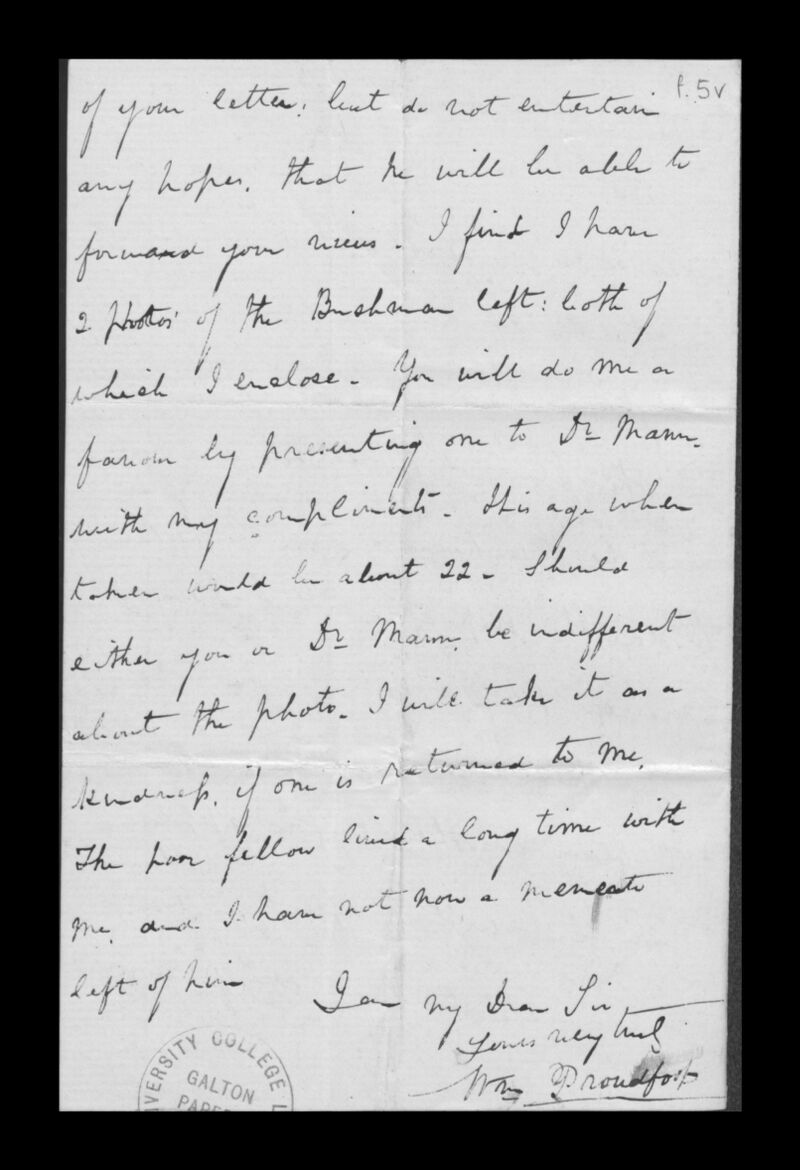 f. 5v
of your letter; but do not entertain
any hopes, that he will be able to
forward your views. I find I have
2 photos of the Bushman left: both of
which I enclose. You will do me a
favour by presenting one to Dr Mann,
with my compliments. His age when
taken would be about 22. Should
either you or Dr Mann, be indifferent
about the photo. I will take it as a
kindness, if one is returned to me.
The poor fellow lived a long time with
me, and I have not now a memento
left of him
I am my Dear Sir
Yours very truly
Wm Proudfoot
VERSITY COLLEGE L
GALTON
PAPE